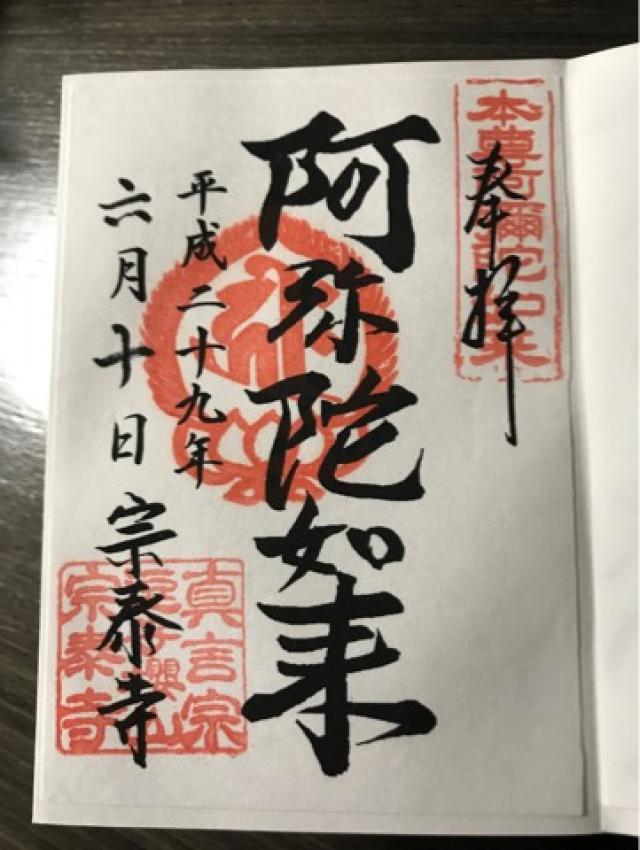 本尊阿彌陀如来
奉拝
阿弥陀如来
平成二十九年
六月十日 宗泰寺
真言宗
宗泰寺